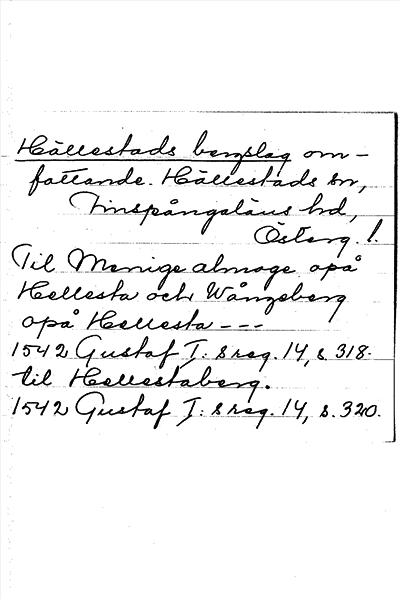 Hällestads bergslag om-
fattande. Hällestads sn,
Finspångaläns hd,
Österg. l.
Til Menige almoge opå
Hellesta och Wångeberg
opå Hellesta ---
1542 Gustaf I: s reg. 14, s. 318.
til Hellestaberg.
1542 Gustaf I: s reg. 14, s. 320.